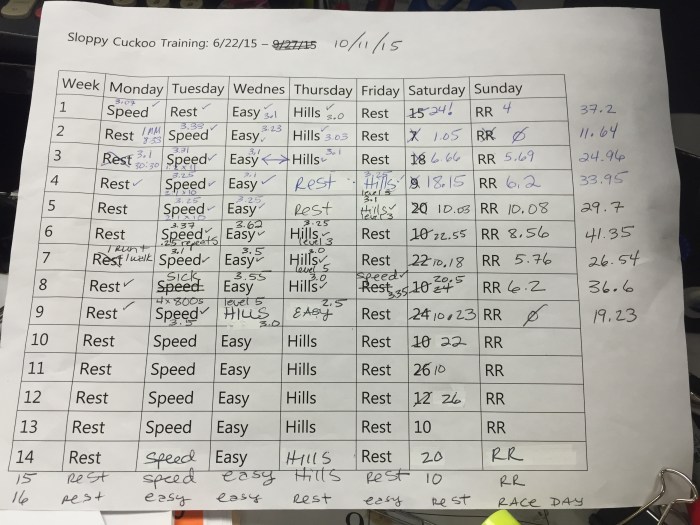 Sloppy Cuckoo Training: 6/22/15 – 9/27/15 10/11/15
Week Monday Tuesday Wednes Thursday Friday Saturday Sunday
1 3.07 Speed ✓ Rest ✓ Easy ✓ 3.1 Hills ✓ 3.0 Rest 15 24! RR 4 37.2
2 Rest 1AM 8:33 Speed ✓ 3.33 Easy ✓ 3.23 Hills ✓ 3.03 Rest 1.05 RR Ø 11.64
3 Rest 3.1 30:30 Speed ✓ 3.31 Easy ✓ 3.1 ↔ Hills ✓ 3.1 Rest 18 6.66 RR 5.69 24.96
4 Rest ✓ Speed ✓ 3.25 Easy ✓ 3.1 Rest Hills ✓ 3.25 level 2 9 18.15 RR 6.2 33.95
5 Rest Speed ✓ 3.25 Easy ✓ 3.25 Rest Hills ✓ 3.1 level 3 20 10.03 RR 10.08 29.7
6 Rest Speed ✓ 3.37 .25 repeats Easy ✓ 3.62 Hills ✓ 3.25 level 3 Rest 10 22.55 RR 8.56 41.35
7 Rest 1 run + 1 walk Speed ✓ 3.1 Easy ✓ 3.5 Hills ✓ 3.0 level 5 Rest 22 10.18 RR 5.76 26.54
8 Rest ✓ Speed Sick Easy ✓ 3.55 Hills ✓ 3.0 Rest Speed ✓ 3.35 10 24 20.5 RR 6.2 36.6
9 Rest ✓ Speed ✓ 4x800s 3.5 level 5 HILLS 3.0 EASY 2.5 Rest 24 10.23 RR Ø 19.23
10 Rest Speed Easy Hills Rest 10 22 RR
11 Rest Speed Easy Hills Rest 26 10 RR
12 Rest Speed Easy Hills Rest 12 26 RR
13 Rest Speed Easy Hills Rest 10 RR
14 Rest Speed Easy Hills Rest 20 RR
15 Rest speed easy Hills Rest 10 RR
16 Rest easy easy Rest easy Rest RACE DAY